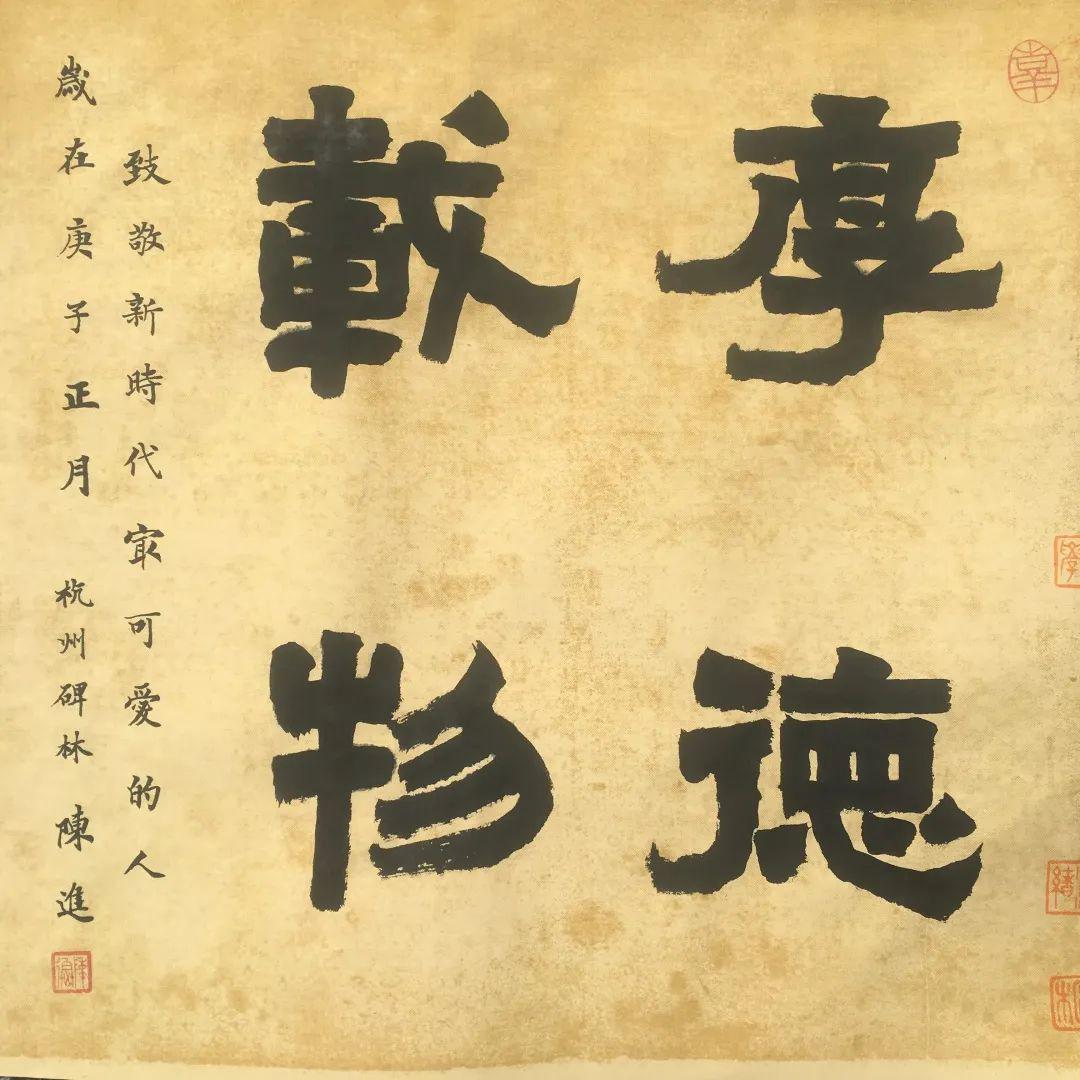 厚德
載物
致敬新時代宲可愛的人
歲在庚子正月 杭州碑林 陳進